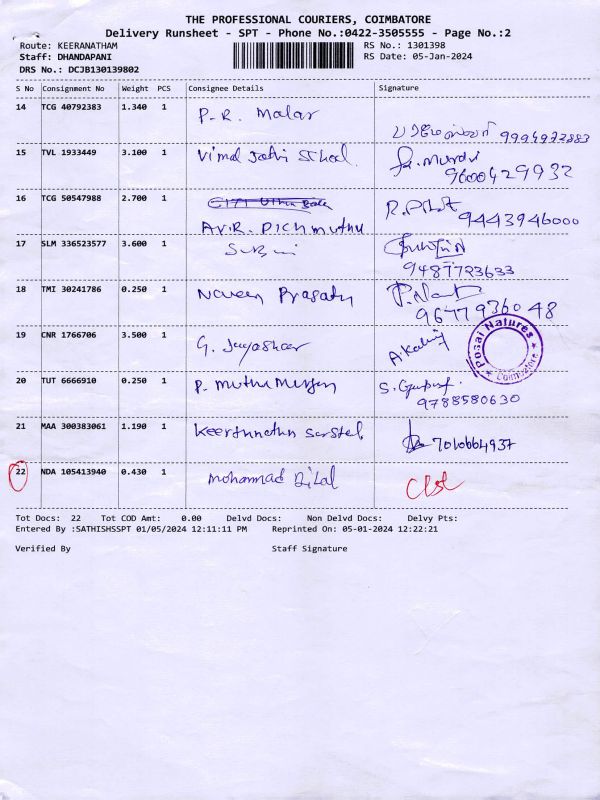 THE PROFESSIONAL COURIERS, COIMBATORE
Delivery Runsheet - SPT - Phone No.:0422-3505555 - Page No.:2
Route: KEERANATHAM RS No.: 1301398
Staff: DHANDAPANI RS Date: 05-Jan-2024
DRS No.: DCJB130139802
S No Consignment No Weight PCS Consignee Details Signature
14 TCG 40792383 1.340 1 P.R. Malar
9994972883
15 TVL 1933449 3.100 1 Vimal Jothi School
9600429932
16 TCG 50547988 2.700 1
9443946000
AV.R. PICHMUTHU
17 SLM 336523577 3.600 1
9487723633
18 TMI 30241786 0.250 1 Naveen Prasath P.
9677936048
19 CNR 1766706 3.500 1 G. A.
Posai Natures
Coimbatore
20 TUT 6666910 0.250 1 P. Muthu S.
9788580630
21 MAA 300383061 1.190 1 7010664937
22 NDA 105413940 0.430 1 Mohammad Bilal
Tot Docs: 22 Tot COD Amt: 0.00 Delvd Docs: Non Delvd Docs: Delvy Pts:
Entered By :SATHISHSSPT 01/05/2024 12:11:11 PM Reprinted On : 05-01-2024 12:22:21
Verified By Staff Signature